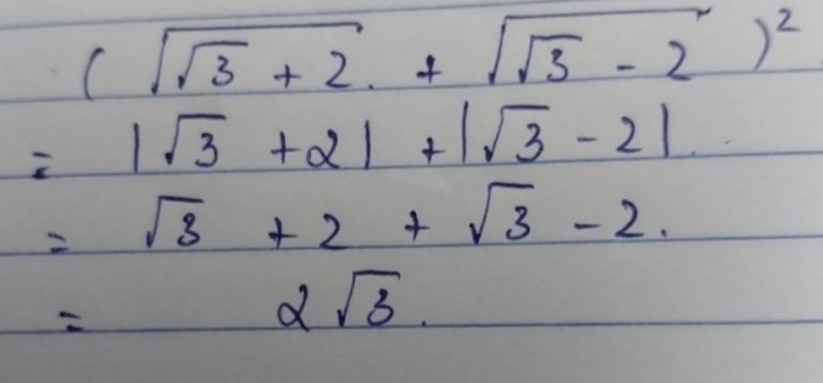 ( √(√3 + 2) + √(√3 - 2) )²
= |√3 + 2| + |√3 - 2|.
= √3 + 2 + √3 - 2.
= 2√3.